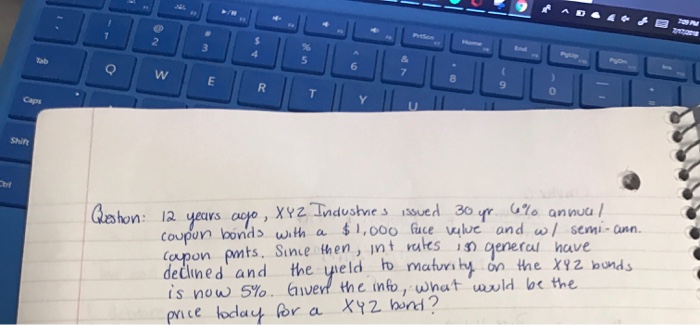 7:09 PM
7/17/2018
PrtScn Home End PgUp PgDn Ins
! 1 @ 2 3 $ 4 % 5 ^ 6 & 7 8 ( 9 ) 0
Tab Q W E R T Y U
Caps
Shift
Question: 12 years ago, XYZ Industries issued 30 yr 6% annual
coupon bonds with a $1,000 face value and w/ semi-ann.
coupon pmts. Since then, int rates in general have
declined and the yield to maturity on the XYZ bonds
is now 5%. Given the info, what would be the
price today for a XYZ bond?